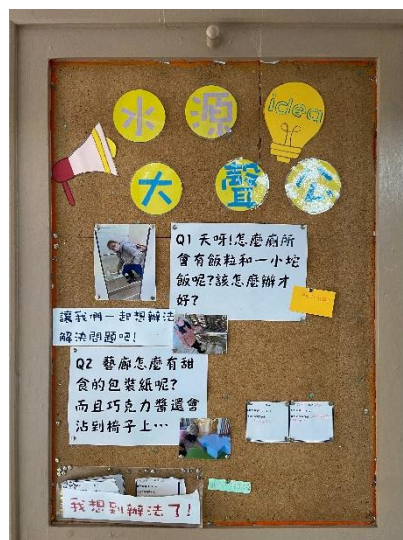 水源
idea
大聲公
Q1 天呀!怎麼廁所
會有飯粒和一小坨
飯呢?該怎麼辦才
好?
讓我們一起想辦法
解決問題吧!
Q2 藝廊怎麼有甜
食的包裝紙呢?
而且巧克力醬還會
沾到椅子上…
我想到辦法了!